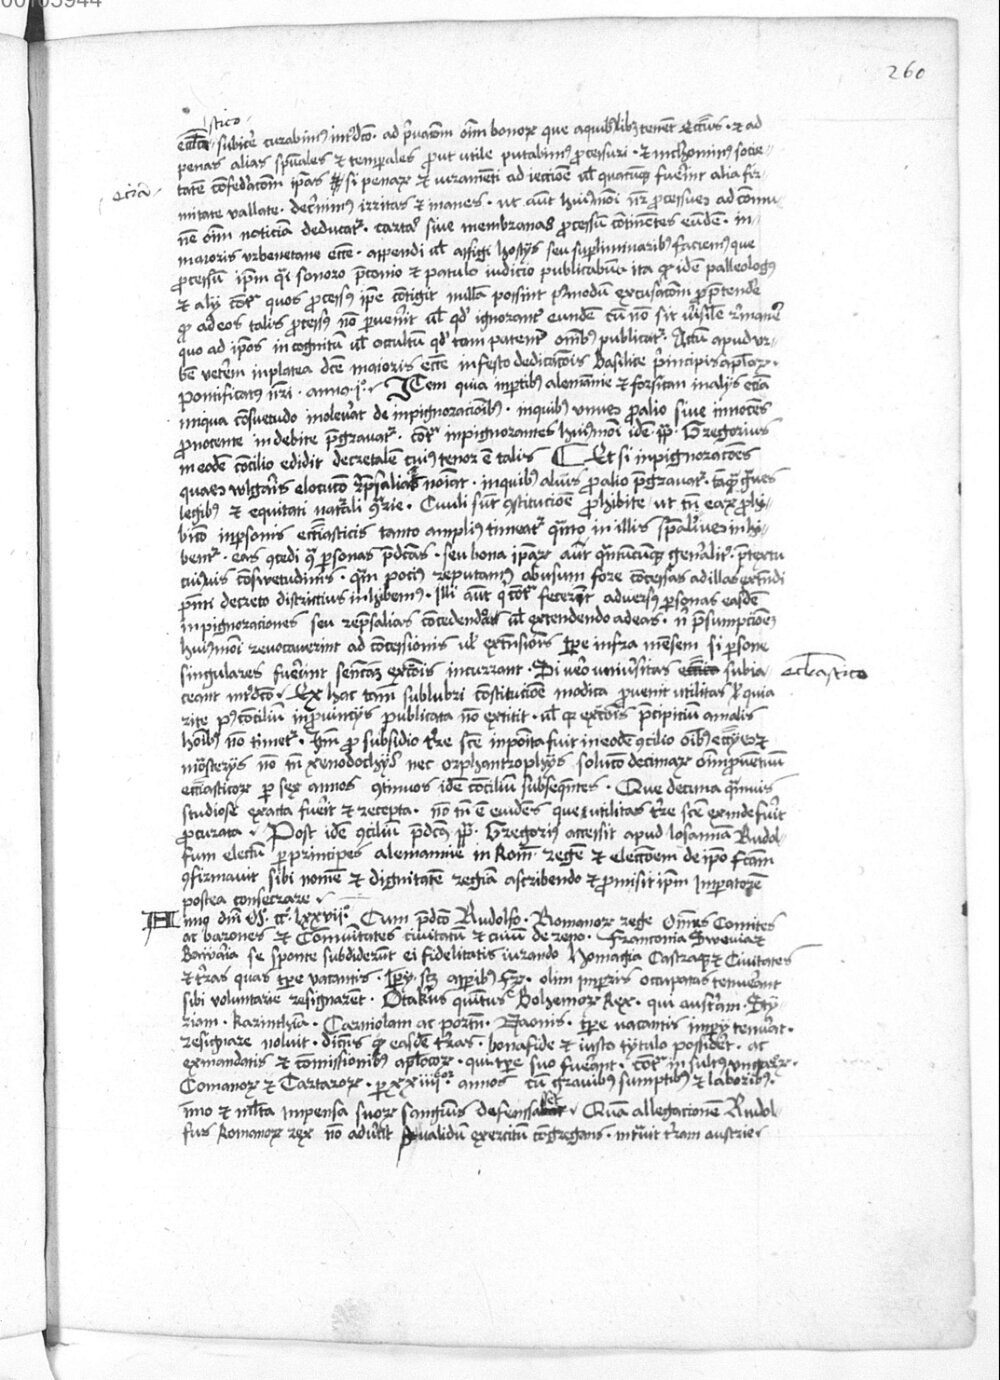 260
stico
subicere curabimus interdicto · ad privacionem omnium bonorum que a quibuslibet tenent ecclesiis · et ad
penas alias spirituales et temporales prout utile putabimus processuri · et nichominus socie-
etiam
tatem confederacionem ipsas si penarum et iuramenti adiectione vel quacumque fuerint alia fir-
mitate vallate · decernimus irritas et inanes · ut autem huiusmodi noster processus ad commu-
nem omnium noticiam deducatur · cartas sive membranas processum continentes eundem · in
maioris urbevetane ecclesie · appendi vel affigi hostiis seu supliminaribus faciemus que
processum ipsum quasi sonoro preconio et patulo iudicio publicabunt · ita quod idem palleologus
et alii contra quos processus ipse contigit nullam possint postmodum excusacionem pretendere
quod ad eos talis processus non pervenerit vel quod ignorarent eundem cum non sit verisimile remanere
quo ad ipsos incognitum vel occultum quod tam patenter omnibus publicatur · Actum apud ur-
bem vetem in platea dicte maioris ecclesie in festo dedicacionis Basilice principis apostolorum ·
pontificatus nostri · anno · i° · Item quia in partibus alemanie et forsitan in aliis etiam
iniqua consuetudo inoleverat de inpignoracionibus · in quibus unus pro alio sive innocens
pro nocente indebite pregravatur · contra inpignorantes huiusmodi idem papa Gregorius
in eodem concilio edidit decretalem cuius tenor est talis Et si inpignoraciones
quas wlgaris elocucio represalias nominat · in quibus alius pro alio pregravatur · tamquam graves
legibus et equitati naturali contrarie · Civili sint constitucione prohibite · ut tamen earum prohi-
bicio in personis ecclesiasticis tanto amplius timeatur quanto in illis specialius inhi-
bentur · eas concedi contra personas predictas · seu bona ipsarum aut quantumcumque generaliter · pretextu
cuiusvis consuetudinis · quam pocius reputamus abusum fore concessas ad illas extendi
presenti decreto districtius inhibemus · Illi autem qui contra fecerint adversus personas easdem
inpignoraciones seu represalias concedendo vel extendendo ad eas · nisi presumpcionem
huiusmodi revocaverint ad concessionis vel extensionis tempore infra mensem si persone
singulares fuerint sentenciam excommunicacionis incurrant · Si vero universitas subia-
ecclesiastico
ceant interdicto · Ex hac tamen sublubri constitucione modica provenit utilitas vel quia
rite post concilium in provinciis publicata non extitit · vel quia excommunicacionis precipicium a malis
hominibus non timetur · Item pro subsidio terre sancte inposita fuit in eodem concilio omnibus ecclesiis et
monasteriis non tamen xenodochiis nec orphantrophiis solucio decimarum omnium proventuum
ecclesiasticorum per sex annos continuos idem concilium subsequentes · Que decima quamvis
studiose exacta fuerit et recepta · non tamen est evidens que utilitas terre sancte exinde fuerit
procurata · Post idem concilium predictus papa Gregorius accessit apud losannam Rudol-
fum electum per principes alemannie in Romanorum regem et electionem de ipso factam
confirmavit sibi nomen et dignitatem regiam ascribendo et promisit ipsum Imperatorem
postea consecrare ·
Anno domini M° cc° lxxvii° Cum predicto Rudolfo · Romanorum rege omnes Comites
ac barones et Communitates civitatum et civium de reno · Franconia Swevia et
Bawaria se sponte subdiderunt ei fidelitatis iurando homagia Castraque et Civitates
et terras quas tempore vacantis · Imperii · scilicet a partibus Fr · olim imperii occupatas tenuerant
sibi voluntarie resignarent · Otakerus quintus Bohemorum Rex · qui austriam · Sty-
riam · karinthiam · Carniolam ac portum · Naonis · tempore vacantis imperii tenuerat ·
resignare noluit · dicens quod easdem terras · bona fide et iusto tytulo possideret · ac
ex mandatis et commissionibus apostolicorum · qui tempore suo fuerant · contra insultus ungarorum ·
Comanorum et Tartarorum · per xxiiii°r annos cum gravibus sumptibus et laboribus ·
immo et multa impensa suorum sanguinis defensaret · Quam allegacionem Rudol-
fus Romanorum rex non advertit sed validum exercitum congregans · intravit terram austrie ·